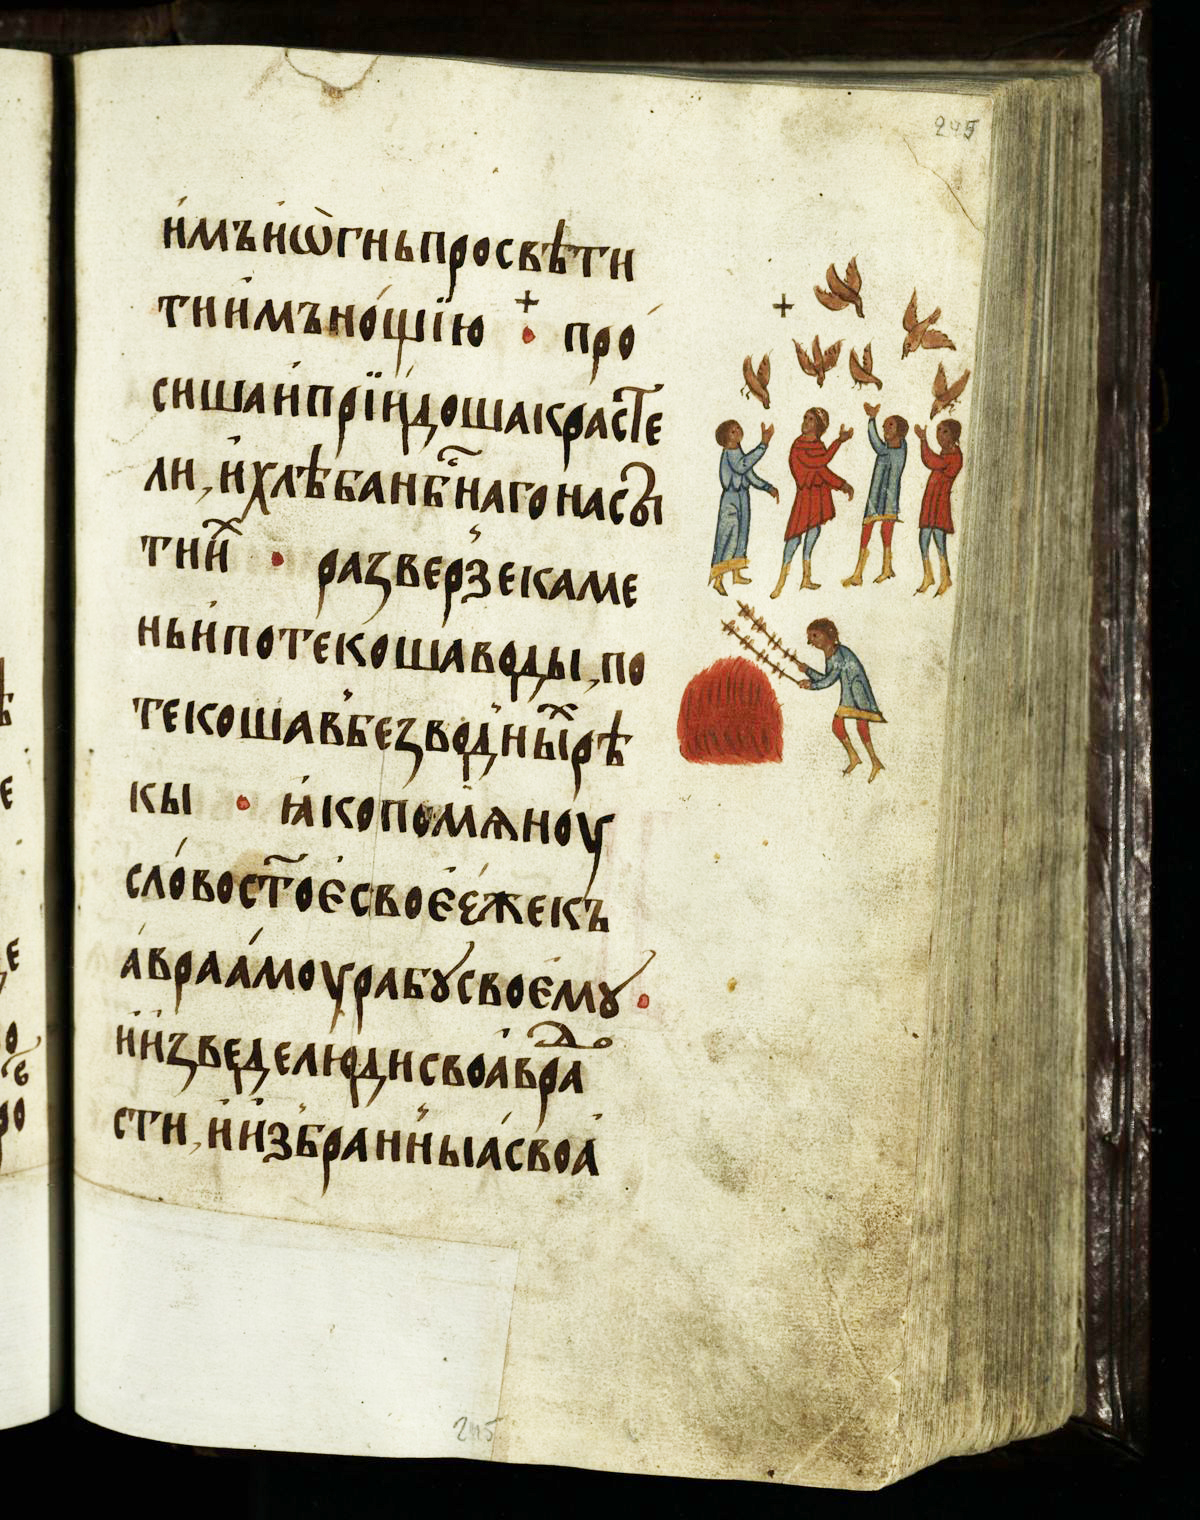 245
и҆мъ и҆ ѡ҆гнь просвѣти
ти и҆мъ но́щїю + про́
сиша и҆ прїи҆доша красте
ли, и҆ хлѣба нб҃наго насы
ти и҆х разверзе каме
нь и҆ потекоша воды, по
текоша в безводных рѣ
кы ꙗ҆ко помѧноу
сло́во ст҃ое҆ свое҆ е҆же къ
а҆враа́моу рабꙋ своемꙋ
и҆ и҆зведе люди своѧ҆ в радо
сти, и҆ и҆збранныѧ своѧ҆
245